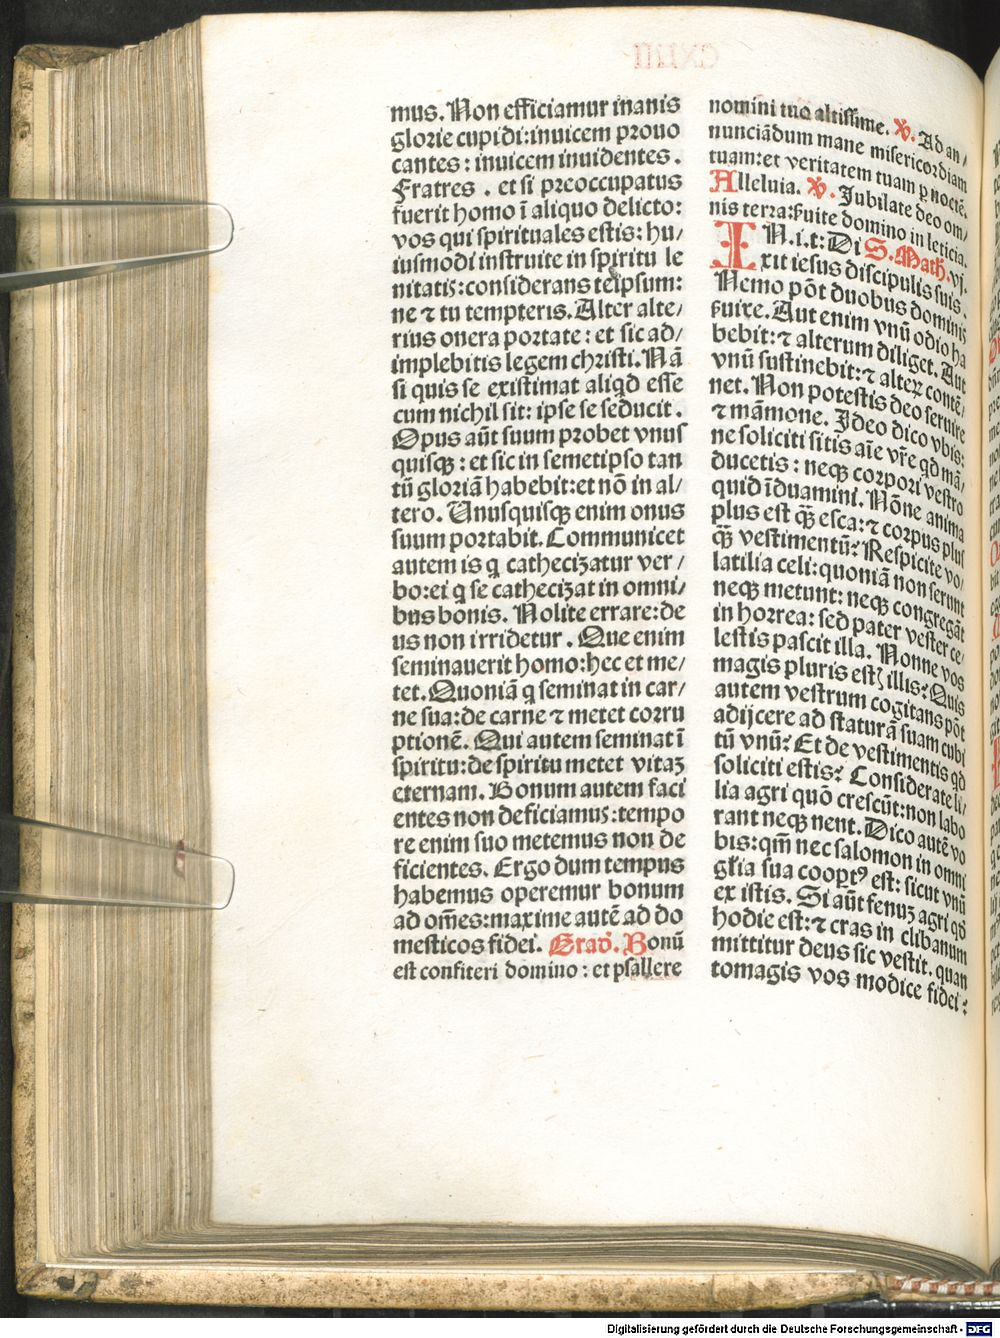 mus. Non efficiamur inanis
glorie cupidi: inuicem prouo
cantes: inuicem inuidentes.
Fratres. et si preoccupatus
fuerit homo ī aliquo delicto:
vos qui spirituales estis: hu/
iusmodi instruite in spiritu le
nitatis: considerans teipsum:
ne ⁊ tu tempteris. Alter alte/
rius onera portate: et sic ad/
implebitis legem christi. Nā
si quis se existimat aliqd esse
cum nichil sit: ipse se seducit.
Opus aūt suum probet vnus
quisqȝ: et sic in semetipso tan
tū gloriā habebit: et nō in al/
tero. Unusquisqȝ enim onus
suum portabit. Communicet
autem is q cathecizatur ver/
bo: ei q se cathecizat in omni/
bus bonis. Nolite errare: de
us non irridetur. Que enim
seminauerit homo: hec et me/
tet. Quoniā q seminat in car/
ne sua: de carne ⁊ metet corru
ptionē. Qui autem seminat ī
spiritu: de spiritu metet vitaȝ
eternam. Bonum autem faci
entes non deficiamus: tempo
re enim suo metemus non de
ficientes. Ergo dum tempus
habemus operemur bonum
ad om̄es: maxime autē ad do
mesticos fidei. Grad̄. Bonū
est confiteri domino: et psallere
nomini tuo altissime. ℣. Ad an/
nunciādum mane misericordiam
tuam: et veritatem tuam ꝑ noctē.
Alleluia. ℣. Jubilate deo om/
nis terra: ẜuite domino in leticia.
IN. i. t: Di S. Math. vj.
xit iesus discipulis suis.
Nemo pōt duobus dominis
ẜuire. Aut enim vnū odio ha
bebit: ⁊ alterum diliget. Aut
vnū sustinebit: ⁊ alterꝝ contē/
net. Non potestis deo seruire
⁊ māmone. Ideo dico vbis:
ne soliciti sitis aīe vr̄e qd mā/
ducetis: neqȝ corpori vestro
quid īduamini. Nōne anima
plus est qȝ̄ esca: ⁊ corpus plus
qȝ̄ vestimentū? Respicite vo/
latilia celi: quoniā non serunt
neqȝ metunt: neqȝ congregāt
in horrea: sed pater vester ce/
lestis pascit illa. Nonne vos
magis pluris estꝭ illis? Quis
autem vestrum cogitans pōt
adijcere ad staturā suam cubi
tū vnū? Et de vestimentis qd
soliciti estis? Considerate li/
lia agri quō crescūt: non labo
rant neqȝ nent. Dico autē vo
bis: qm̄ nec salomon in omni
gl̄ia sua coopt⁹ est: sicut vnū
ex istis. Si aūt fenuȝ agri qd̄
hodie est: ⁊ cras in clibanum
mittitur deus sic vestit. quan
tomagis vos modice fidei?
Digitalisierung gefördert durch die Deutsche Forschungsgemeinschaft - DFG